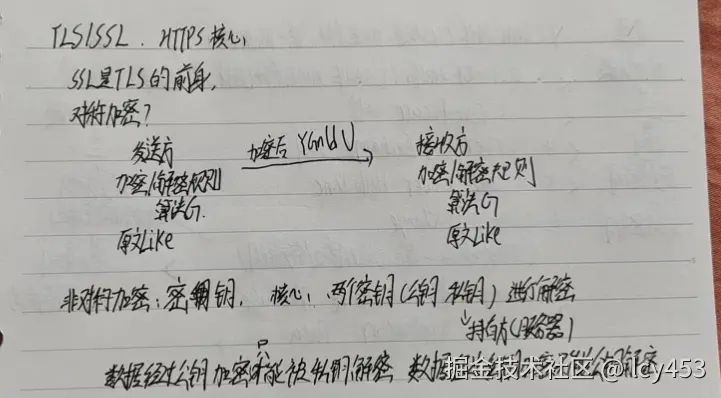 TLS/SSL. HTTPS核心,
SSL是TLS的前身,
对称加密?
发送方 加密后 YGnldU 接收方
加密/解密规则 加密/解密规则
算法G. 算法G
原文Like 原文Like
非对称加密:密钥, 核心,两个密钥(公钥 私钥)进行解密
持有方(服务器)
数据经过公钥加密 只能被私钥解密 数据
掘金技术社区 @ licy453